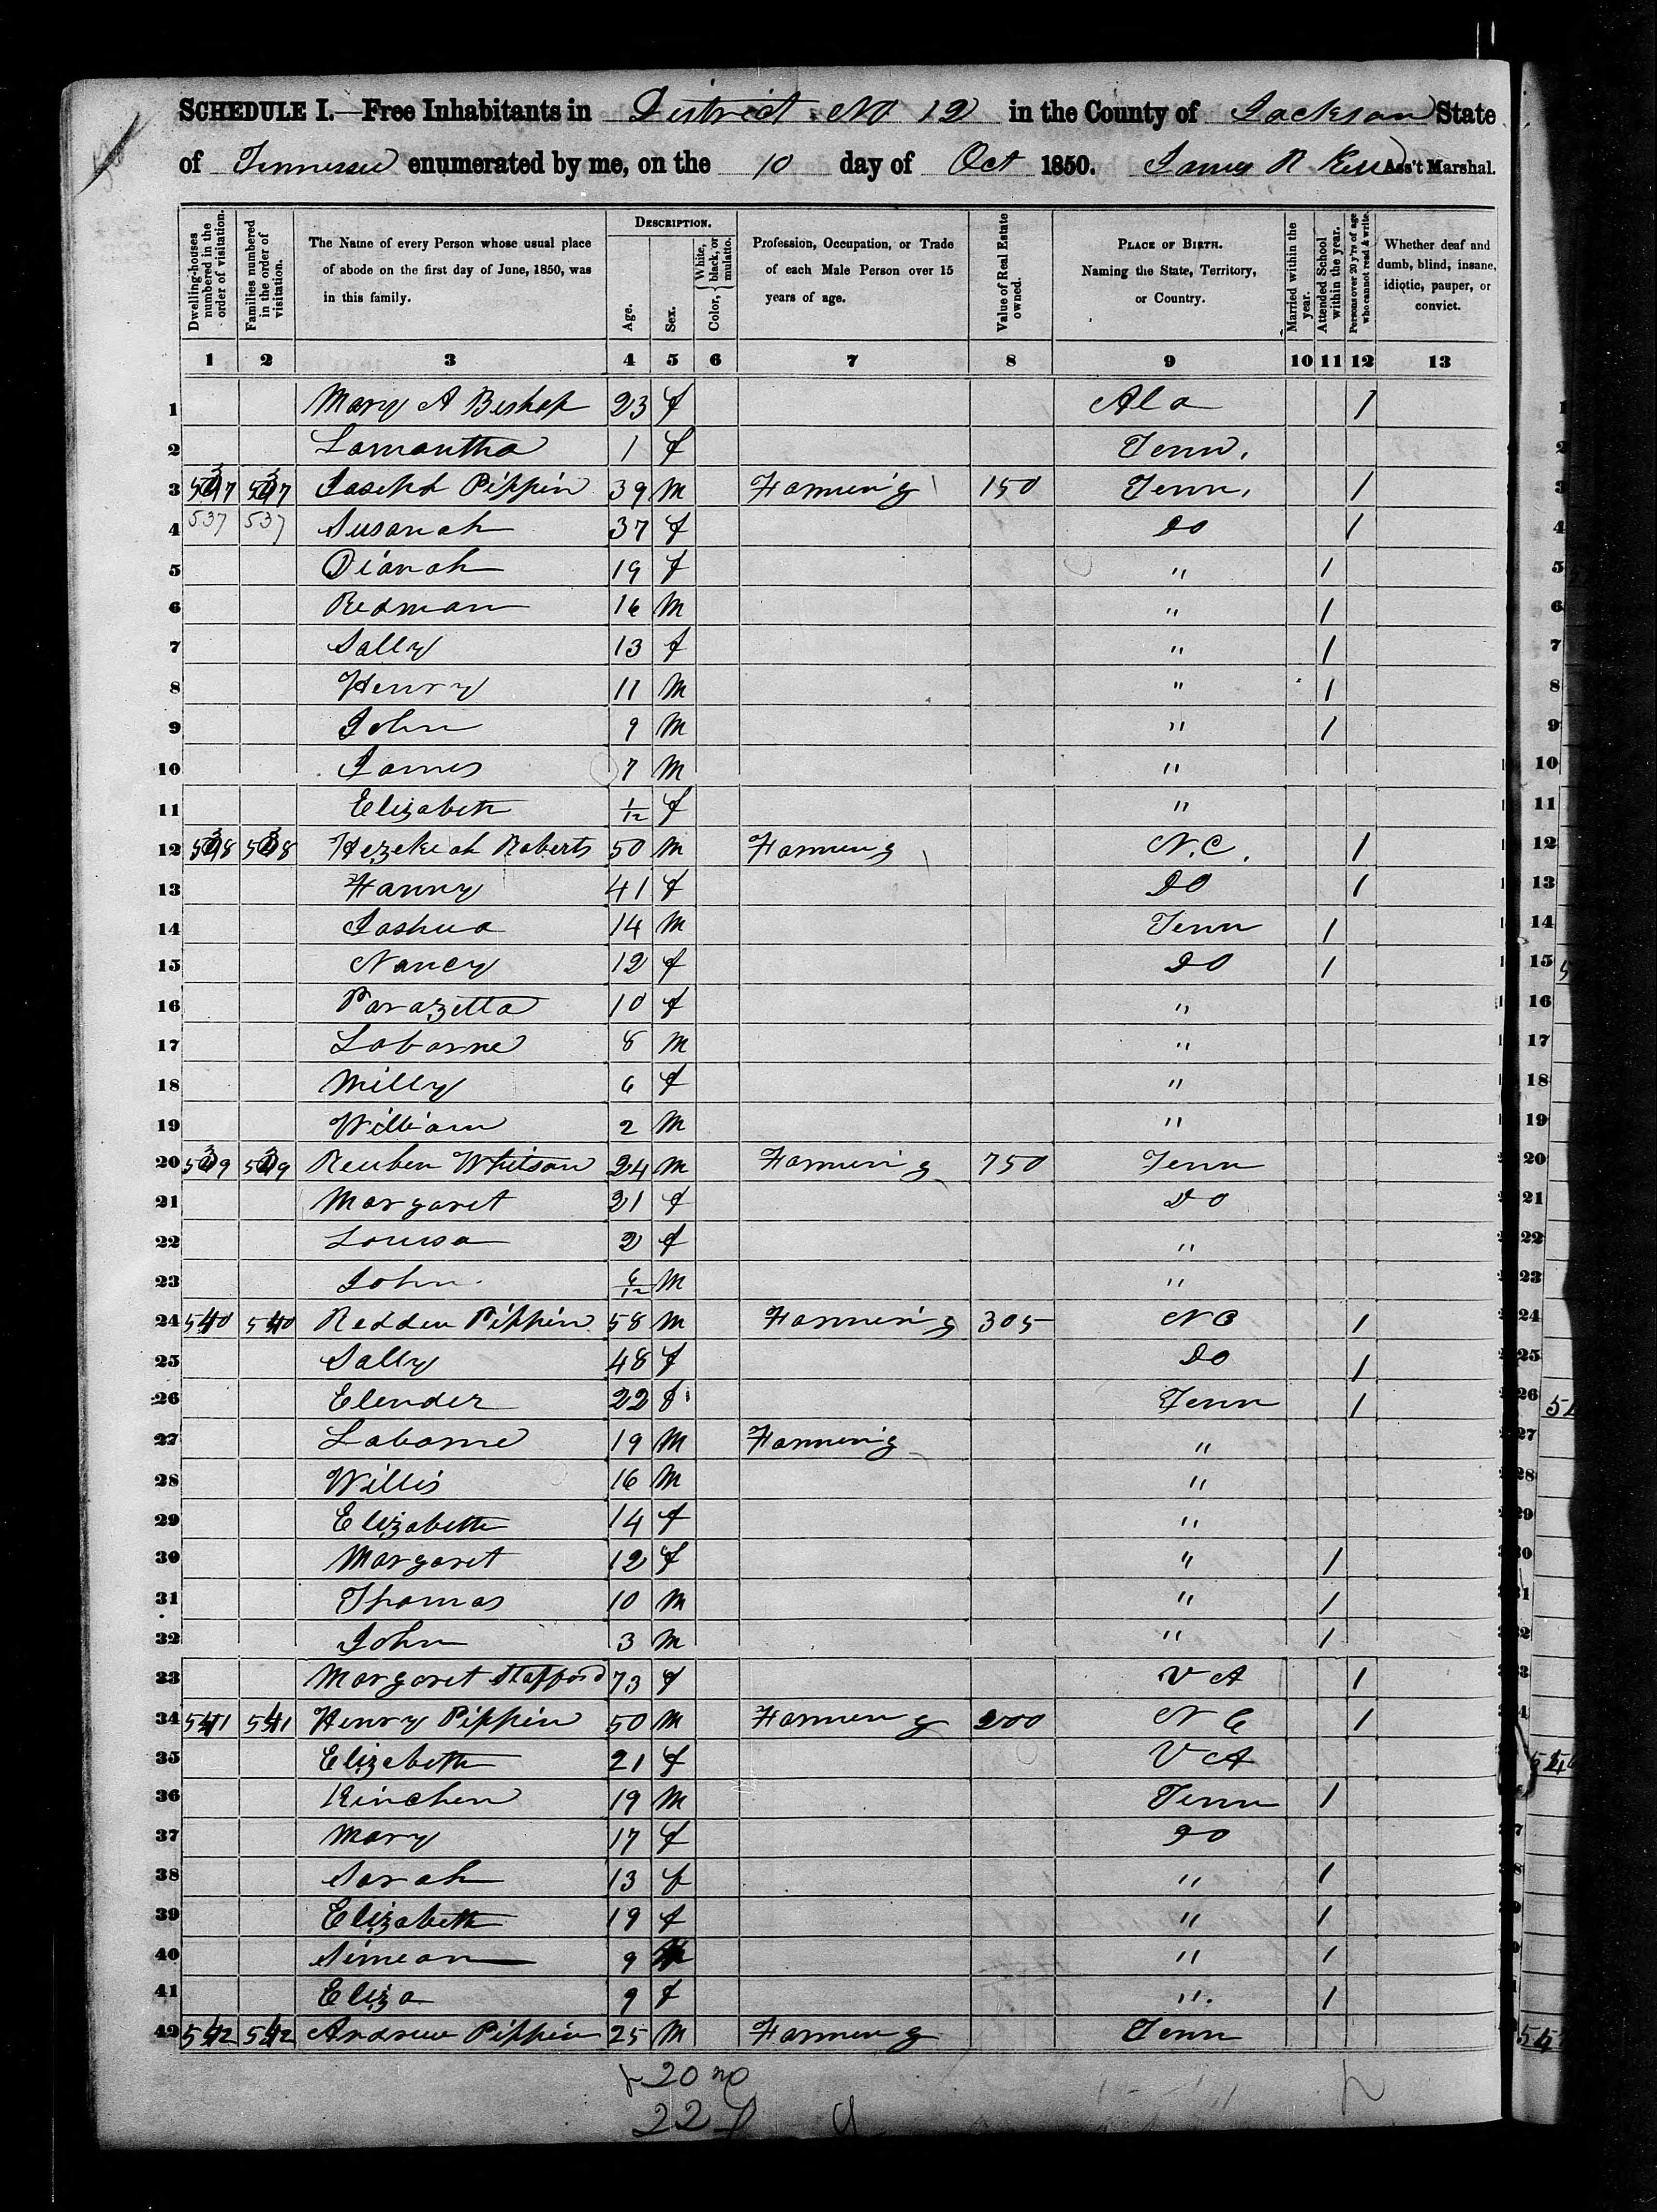 SCHEDULE I.—Free Inhabitants in District No 12 in the County of Jackson State
of Tennessee enumerated by me, on the 10 day of Oct 1850. James R Ass't Marshal.
Dwelling-houses numbered in the order of visitation.
Families numbered in the order of visitation.
The Name of every Person whose usual place of abode on the first day of June, 1850, was in this family.
DESCRIPTION.
Age.
Sex.
Color, { White, black, or mulatto.
Profession, Occupation, or Trade of each Male Person over 15 years of age.
Value of Real Estate owned.
PLACE OF BIRTH. Naming the State, Territory, or Country.
Married within the year.
Attended School within the year.
Persons over 20 y'rs of age who cannot read & write.
Whether deaf and dumb, blind, insane, idiotic, pauper, or convict.
1 2 3 4 5 6 7 8 9 10 11 12 13
1 Mary A Bishop 23 f Ala 1
2 Lamantha 1 f Tenn,
3 537 537 Joseph Pippin 39 M Farming 150 Tenn, 1
4 537 537 Susanah 37 f Do 1
5 Dianah 19 f " 1
6 Redman 16 M " 1
7 Sally 13 f " 1
8 Henry 11 M " 1
9 John 9 M " 1
10 James 7 M "
11 Elizabeth 1/12 f "
12 538 538 Hezekiah Roberts 50 M Farming N.C. 1
13 Fanny 41 f Do 1
14 Joshua 14 M Tenn 1
15 Nancy 12 f Do 1
16 Parazetta 10 f "
17 Laborne 8 M "
18 Milly 6 f "
19 William 2 M "
20 539 539 Reuben Whitson 24 M Farming 750 Tenn
21 Margaret 21 f Do
22 Louisa 2 f "
23 John 6/12 M "
24 540 540 Redden Pippin 58 M Farming 305 NC 1
25 Sally 48 f Do 1
26 Elender 22 f Tenn 1
27 Laborne 19 M Farming "
28 Willis 16 M "
29 Elizabeth 14 f "
30 Margaret 12 f " 1
31 Thomas 10 M " 1
32 John 3 M " 1
33 Margaret Stafford 73 f VA 1
34 541 541 Henry Pippin 50 M Farming 200 NC 1
35 Elizebeth 21 f VA
36 Kinchen 19 M Tenn 1
37 Mary 17 f Do
38 Sarah 13 f " 1
39 Elizabeth 19 f " 1
40 Simeon 9 M " 1
41 Eliza 9 f " 1
42 542 542 Andrew Pippin 25 M Farming Tenn
20 m
22 f